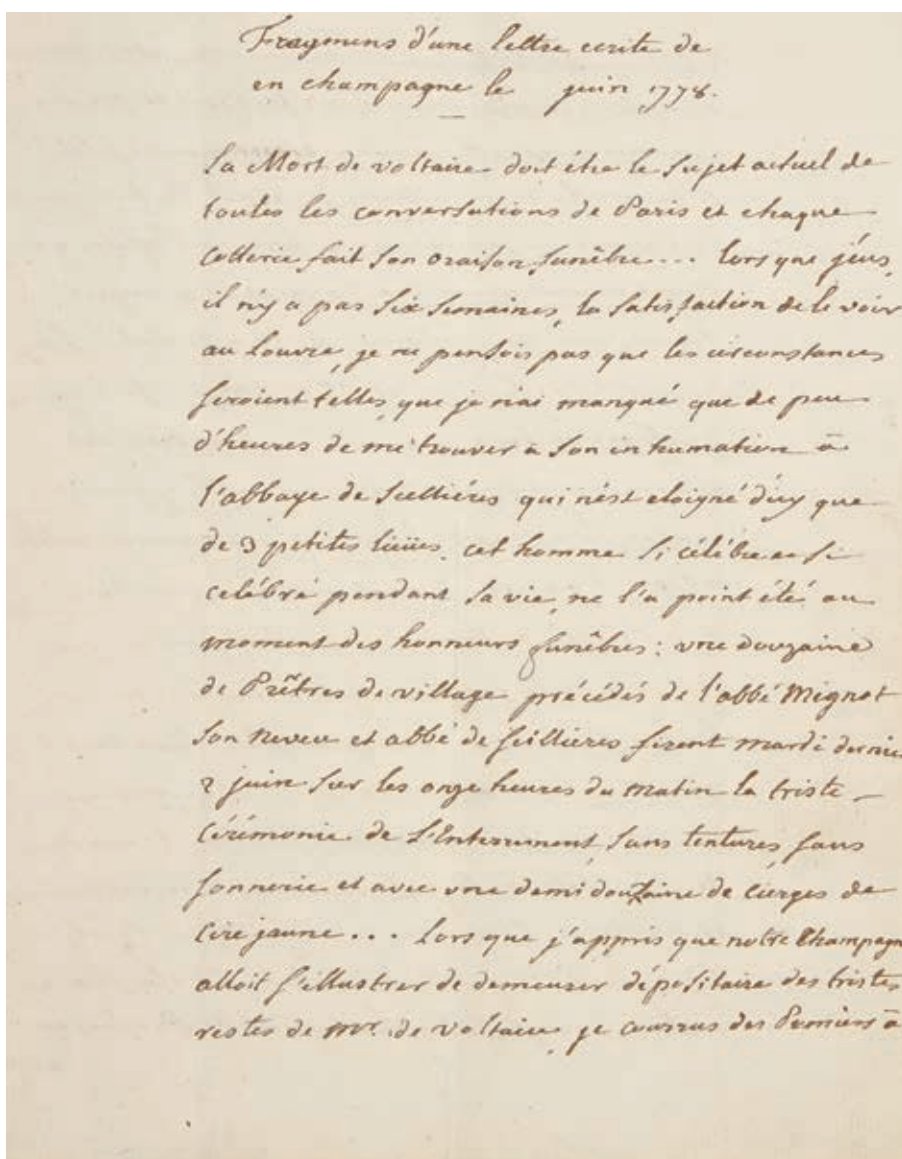 Fragmens d'une lettre ecrite de
en champagne le juin 1778.
La Mort de voltaire doit être le sujet actuel de
toutes les conversations de Paris et chaque
Cotterie fait son oraison funêbre... lors que j'eus,
il n'y a pas six semaines, la satisfaction de le voir
au louvre, je ne pensois pas que les circonstances
seroient telles, que je n'ai manqué que de peu
d'heures de me trouver a son inhumation à
l'abbaye de Scellières qui n'est eloigné d'icy que
de 3 petites liëues. cet homme si célébre et si
celébré pendant sa vie, ne l'a point été au
moment des honneurs funêbres: une douzaine
de Prêtres de village précédés de l'abbé Mignot
son neveu et abbé de scillières firent mardi dernier
2 juin sur les onze heures du matin la triste
Cérémonie de L'Enterrement, sans tentures, sans
sonnerie et avec une demi douzaine de cierges de
Cire jaune... Lors que j'appris que notre Champagne
alloit s'illustrer de demeurer dépositaire des tristes
restes de Mr. de voltaire, je courrus des Premiers à